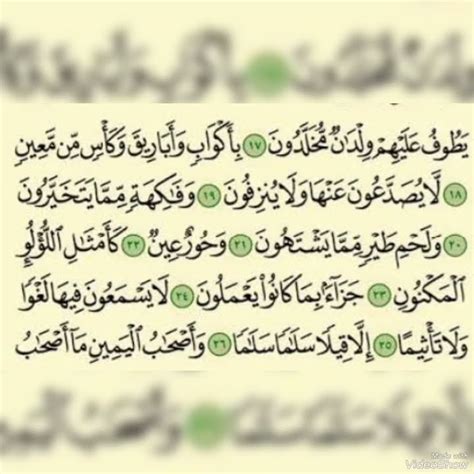 يَطُوفُ عَلَيْهِمْ وِلْدَٰنٌ مُّخَلَّدُونَ ١٧ بِأَكْوَابٍ وَأَبَارِيقَ وَكَأْسٍ مِّن مَّعِينٍ
١٨ لَّا يُصَدَّعُونَ عَنْهَا وَلَا يُنزِفُونَ ١٩ وَفَٰكِهَةٍ مِّمَّا يَتَخَيَّرُونَ
٢٠ وَلَحْمِ طَيْرٍ مِّمَّا يَشْتَهُونَ ٢١ وَحُورٌ عِينٌ ٢٢ كَأَمْثَٰلِ اللُّؤْلُوِٕ
الْمَكْنُونِ ٢٣ جَزَآءًۢ بِمَا كَانُوا۟ يَعْمَلُونَ ٢٤ لَا يَسْمَعُونَ فِيهَا لَغْوًا
وَلَا تَأْثِيمًا ٢٥ إِلَّا قِيلًا سَلَٰمًا سَلَٰمًا ٢٦ وَأَصْحَٰبُ الْيَمِينِ مَآ أَصْحَٰبُ
Made with
VideoShow